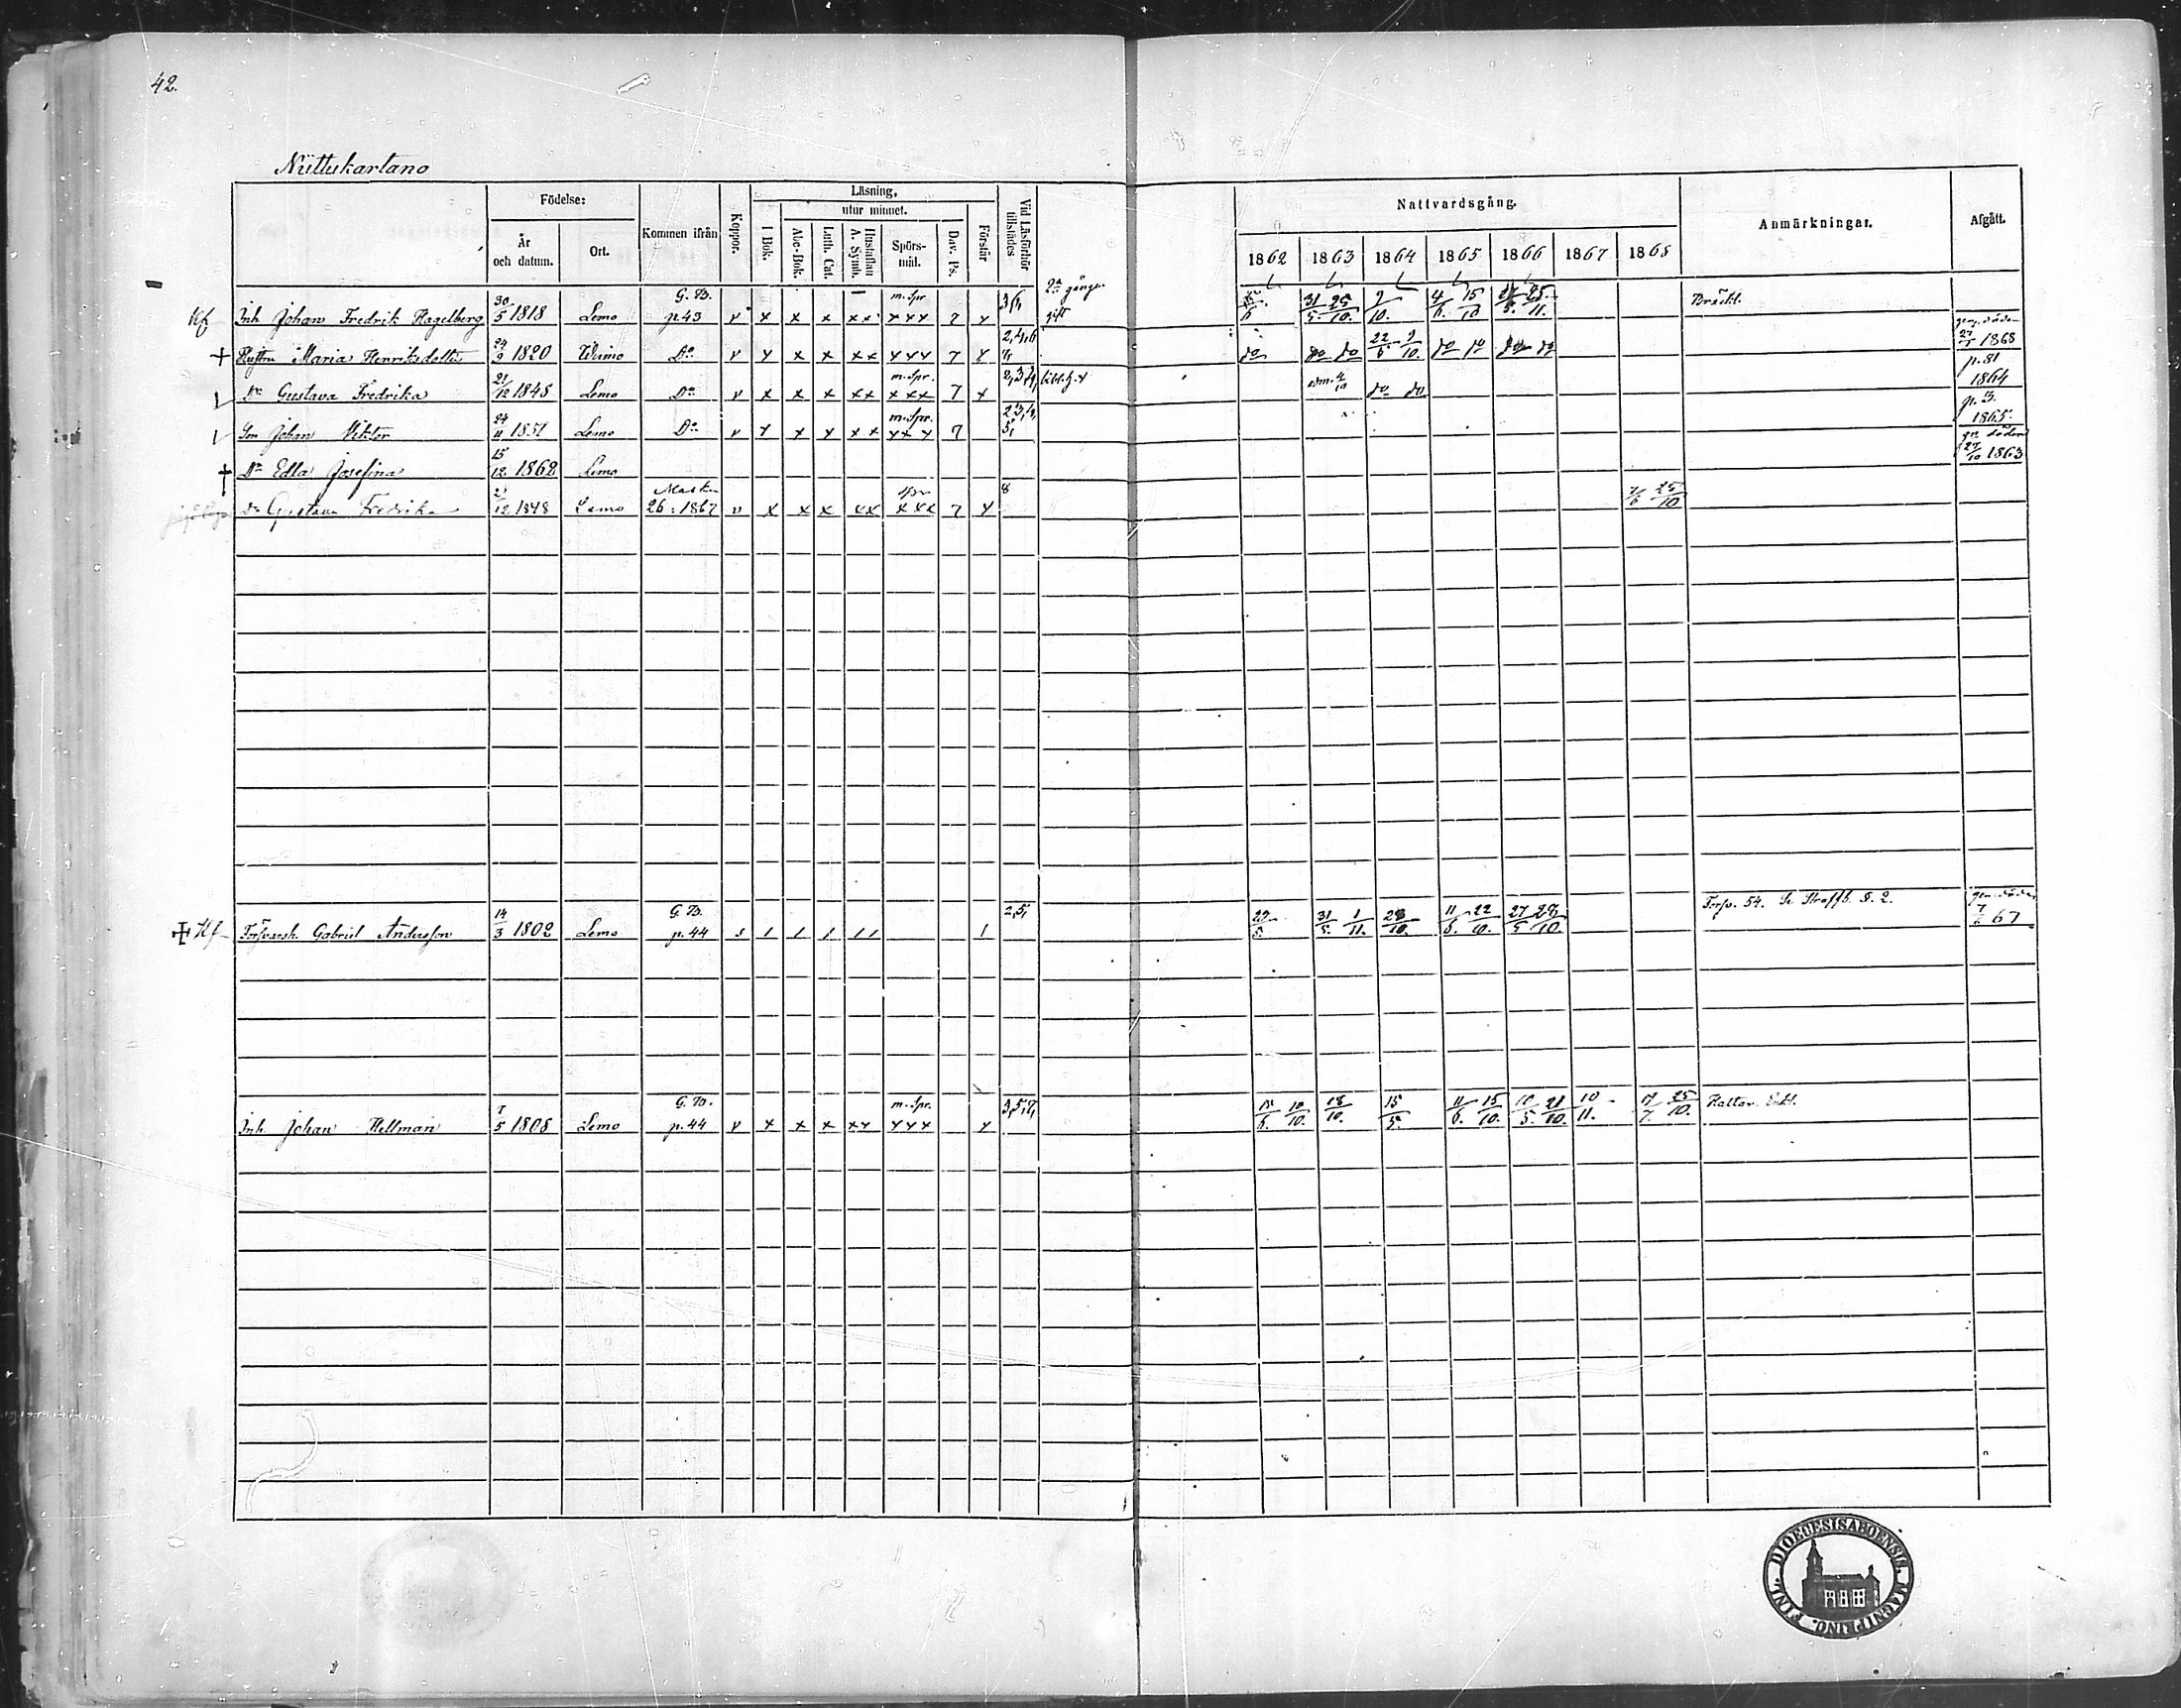 42.
Niittukartano
Födelse:
År och datum.
Ort.
Kommen ifrån
Koppor.
Läsning,
utur minnet.
I Bok.
Abc-Bok.
Luth. Cat.
Hustaflan A. Symb.
Spörs-mål.
Dav. Ps.
Förstår
Vid Läsförhör tillstädes
Nattvardsgång.
1862 1863 1864 1865 1866 1867 1868
Anmärkningar.
Afgått.
Kf Inh. Johan Fredrik Hagelberg 30/5 1818 Lemo G. B. p. 43 v x x x xx m. Spr xxx 7 x 2a gången gift 31/5 25/10. 9/10. 4/6. 15/10 Bräckl.
+ Hustru Maria Henriksdotter 24/9 1820 Wirmo Do v x x x xx xxx 7 x 2,4,6 do do do 22/5 9/10. do do do do 1868
Dr Gustava Fredrika 21/12 1845 Lemo Do v x x x xx m. Spr. xxx 7 x do do p. 81 1864
Son Johan Viktor 24/11 1851 Lemo Do v x x x xx m. Spr. xxx 7 1865
+ Dr Edla Josefina 15/12 1862 Lemo 27/10 1863
Dr Gustava Fredrika 21/12 1848 Lemo Masku 26 : 1867 v x x x xx xxx 7 x 8 7/6 25/10
+ Kf Torfvarsh. Gabriel Andersson 14/3 1802 Lemo G. B. p. 44 s 1 1 1 1 1 1 2,5, 29/5. 31/5. 1/11. 11/6. 22/10. 27/5 28/10. Torp. 54. Se Straffb. S. 2. 67
Inh. Johan Hellman 7/5 1808 Lemo G. B. p. 44 v x x x xx m. Spr. xxx x 3,5,7, 18/10. 15/5. 11/6. 15/10. 21/10. 10/11. 17/7. 25/10. Hattar.
FINL. DIOECESIS ABOENSIS. MAGNI PRINC.